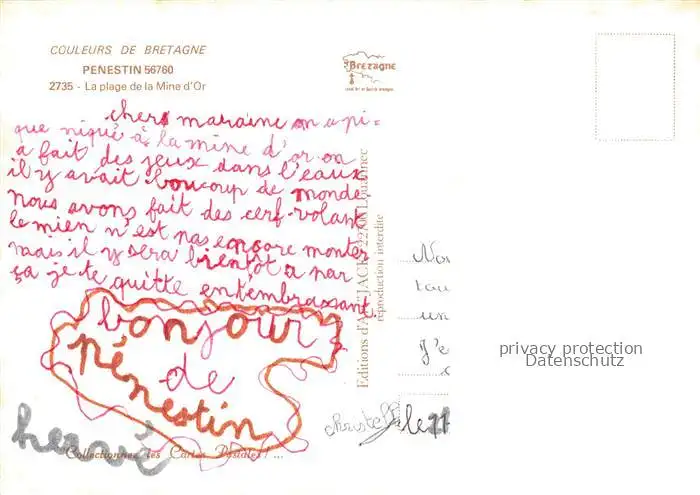 COULEURS DE BRETAGNE
PENESTIN 56760
2735 - La plage de la Mine d'Or
Bretagne
chers maraine on a pi=
que niqué à la mine d'or on
a fait des jeux dans l'eaux
il y avait boucoup de monde
nous avons fait des cerf-volant
le mien n'est pas encore monter
mais il y sera bientôt a par
sa je te quitte en t'embrassant.
bonjour
de
pénestin
hervé
Collectionnez les Cartes Postales ! ...
Editions d'Art "JACK"
reproduction interdite
un
J'e
christ
le 21
privacy protection
Datenschutz